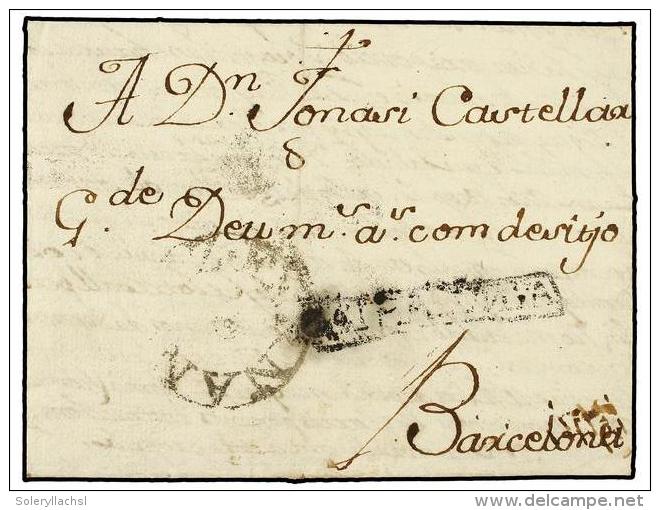 A Dn. Jonasi Castellar
G.de Deu m.s a.s com desitjo
Barcelona
Soleryllachsl
delcampe.net